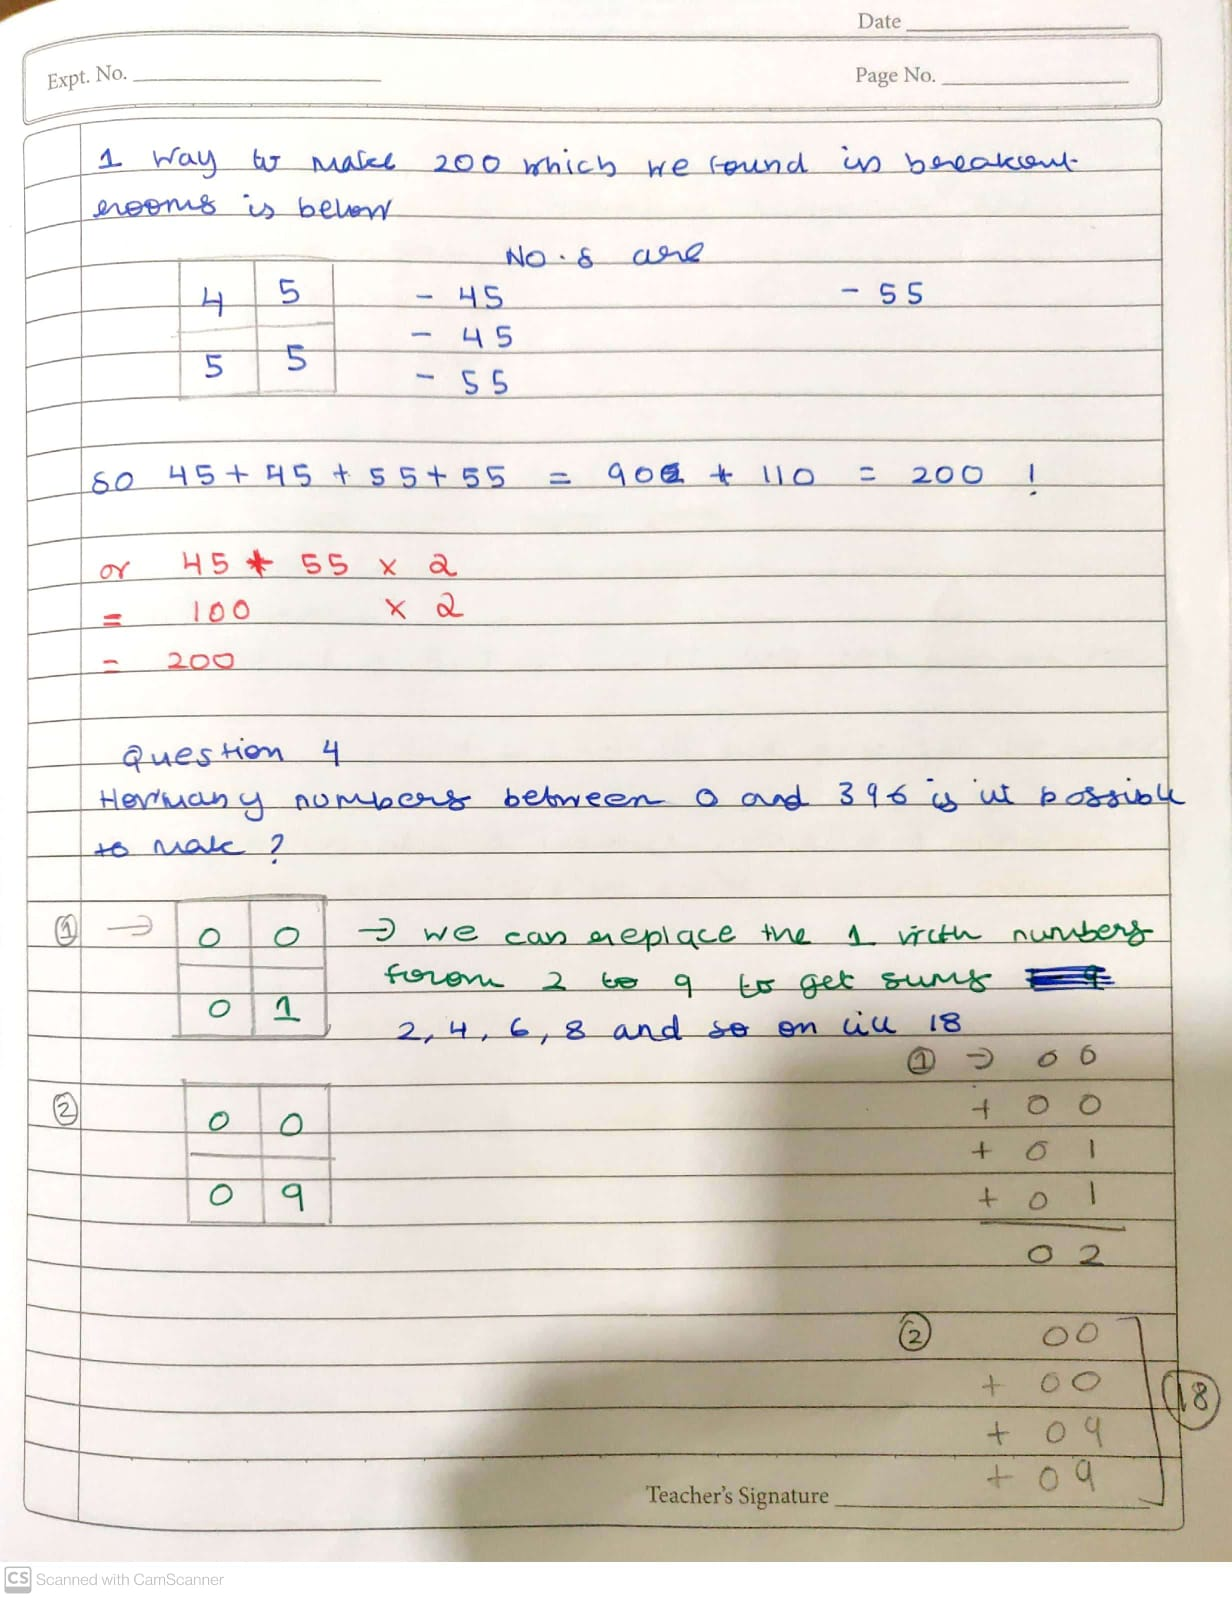 Date
Expt. No.
Page No.
1 way to make 200 which we found in breakout
rooms is below
No.s are
4 5 - 45 - 55
- 45
5 5 - 55
so 45 + 45 + 55 + 55 = 90 + 110 = 200 !
or 45 + 55 x 2
= 100 x 2
= 200
Question 4
How many numbers between 0 and 396 is it possible
to make ?
1 → 0 0 → we can replace the 1 with numbers
from 2 to 9 to get sums
0 1 2, 4, 6, 8 and so on till 18
1 → 0 0
2 0 0 + 0 0
+ 0 1
0 9 + 0 1
0 2
2 00
+ 00 18
+ 09
+ 09
Teacher's Signature
CS Scanned with CamScanner